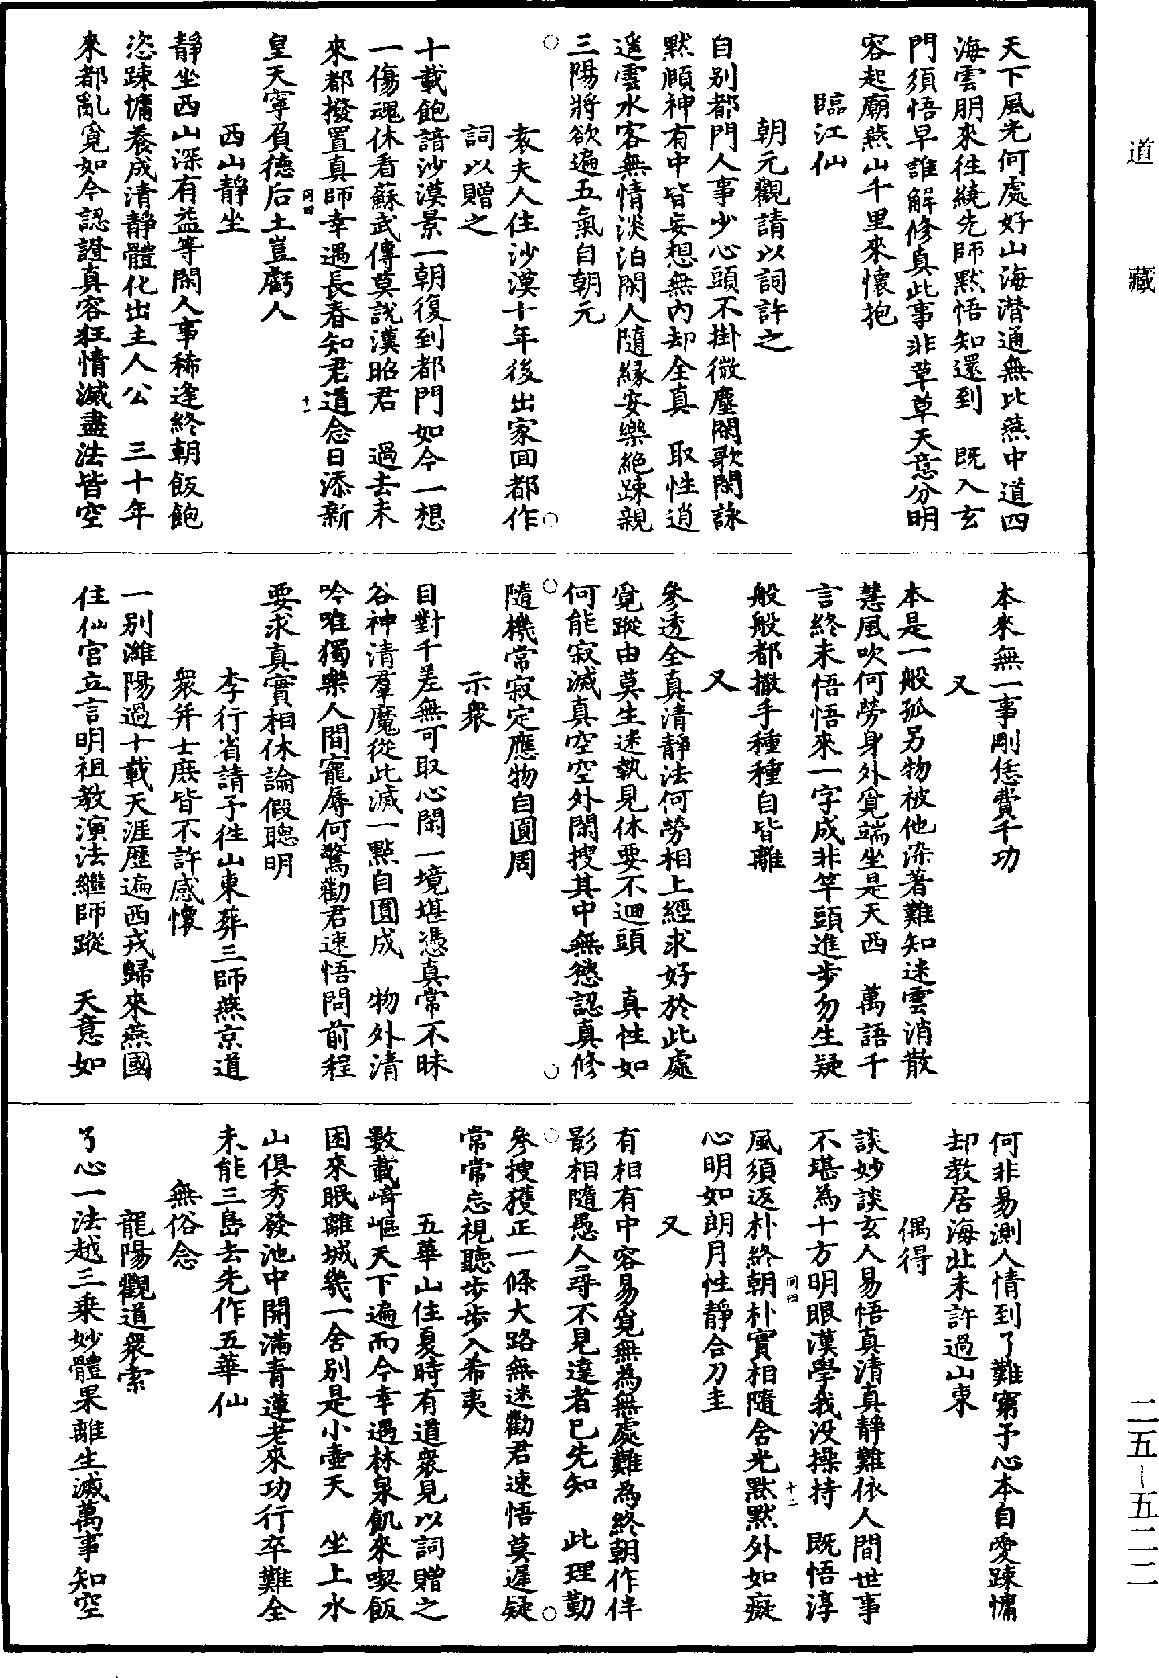 道藏
天下風光何處好山海潛通無比燕中道四
海雲朋來往繞先師默悟知還到　既入玄
門須悟早誰解修真此事非草草天意分明
容起廟燕山千里來懷抱
臨江仙
朝元觀請以詞許之
自别都門人事少心頭不掛微塵閑歌閑詠
默頤神有中皆妄想無内却全真　取性逍
遥雲水客無情淡泊閑人隨緣安樂絶踈親
三陽將欲遍五氣自朝元
袁夫人住沙漠十年後出家回都作
詞以贈之
十載飽諳沙漠景一朝復到都門如今一想
一傷魂休看蘇武傳莫説漢昭君　過去未
來都撥置真師幸遇長春知君道念日添新
同四
十一
皇天寧負德后土豈虧人
西山靜坐
靜坐西山深有益等閑人事稀逢終朝飯飽
恣踈慵養成清靜體化出主人公　三十年
來都亂覓如今認證真容狂情滅盡法皆空
本來無一事剛恁費千功
又
本是一般孤另物被他染著難知迷雲消散
慧風吹何勞身外覓端坐是天西　萬語千
言終未悟悟來一字成非竿頭進步勿生疑
般般都撒手種種自皆離
又
參透全真清靜法何勞相上經求好於此處
覓蹤由莫生迷執見休要不迴頭　真性如
何能寂滅真空空外閑搜其中無慾認真修
隨機常寂定應物自圓周
示衆
目對千差無可取心閑一境堪憑真常不昧
谷神清羣魔從此滅一點自圓成　物外清
吟唯獨樂人間寵辱何驚勸君速悟問前程
要求真實相休論假聰明
李行省請予往山東葬三師燕京道
衆并士庶皆不許感懷
一别濰陽過十載天涯歷遍西戎歸來燕國
住仙宫立言明祖教演法繼師蹤　天意如
何非易測人情到了難窮予心本自愛踈慵
却教居海北未許過山東
偶得
談妙談玄人易悟真清真靜難依人間世事
不堪為十方明眼漢學我没操持　既悟淳
風須返朴終朝朴實相隨含光默默外如癡
同四
十二
心明如朗月性靜合刀圭
又
有相有中容易覓無為無處難為終朝作伴
影相隨愚人尋不見達者已先知　此理勤
參搜獲正一條大路無迷勸君速悟莫遲疑
常常忘視聽步步入希夷
五華山住夏時有道衆見以詞贈之
數載崎嶇天下遍而今幸遇林泉飢來喫飯
困來眠離城幾一舍别是小壺天　坐上水
山俱秀發池中開滿青蓮老來功行卒難全
未能三島去先作五華仙
無俗念
龍陽觀道衆索
了心一法越三乘妙體果離生滅萬事知空
二五-五二二